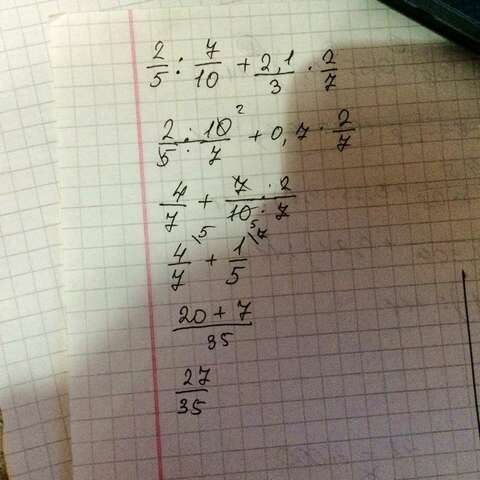 2/5 : 7/10 + 2,1/3 · 2/7
2 · 10 2/5 · 7 + 0,7 · 2/7
4/7 + 7 · 2/10 · 7
5
4/7 \5 + 1/5 \7
20 + 7/35
27/35